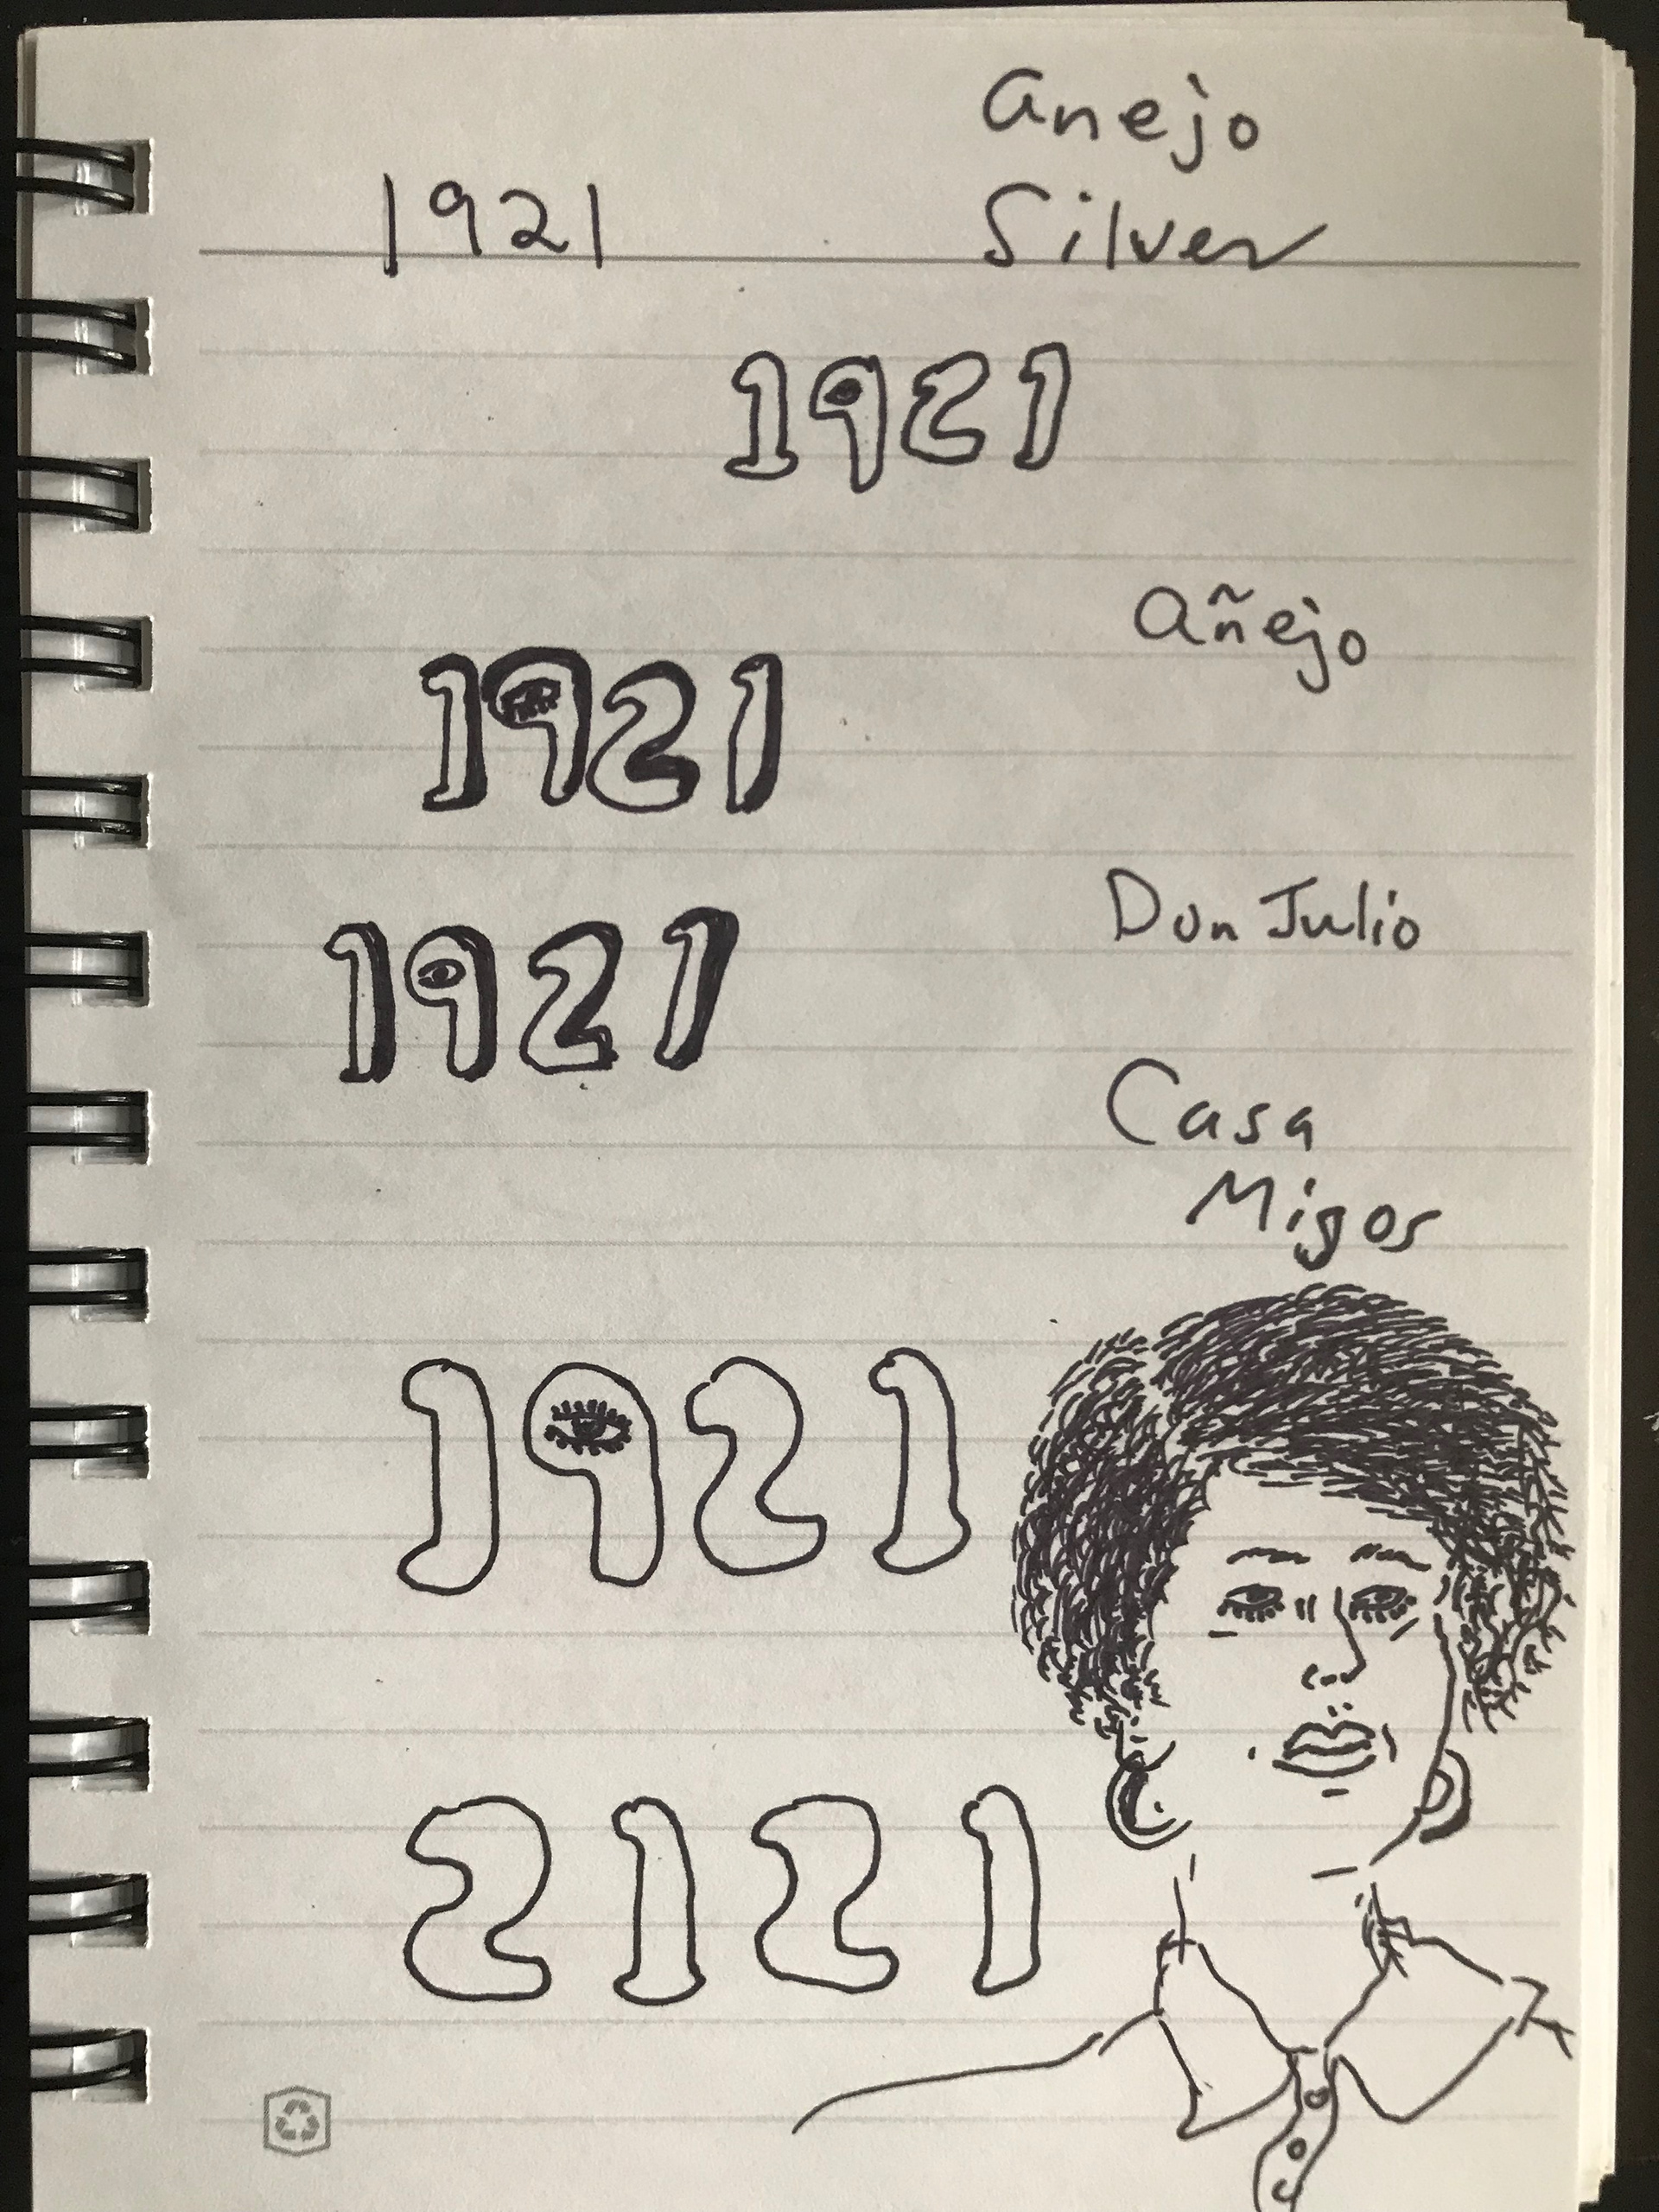 Anejo
1921 Silver
1921
Añejo
1921
Don Julio
1921
Casa
Migos
1921
2121